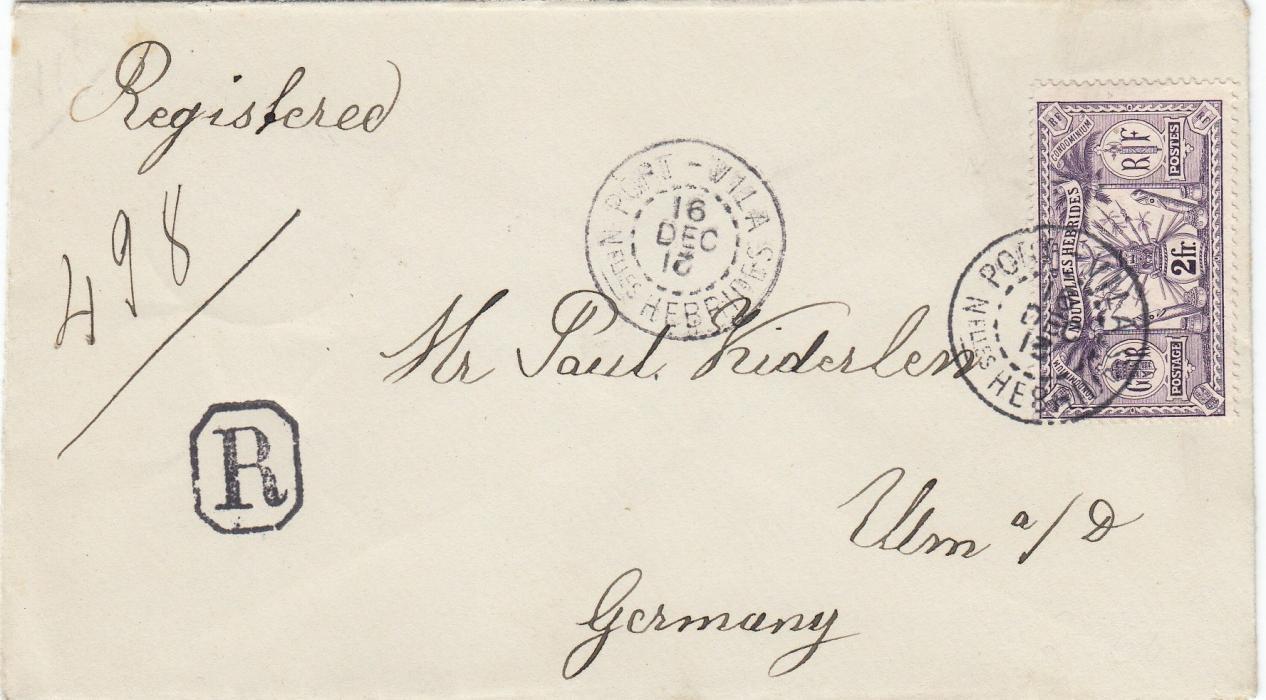 Registered
498
R
PORT-VILA
16
DEC
NELLES HEBRIDES
Mr Paul Kiderlen
Ulm a/D
Germany
RF
CONDOMINIUM
RF
POSTES
NOUVELLES HEBRIDES
2fr.
POSTAGE
CONDOMINIUM
PORT-VILA
NELLES HEBR